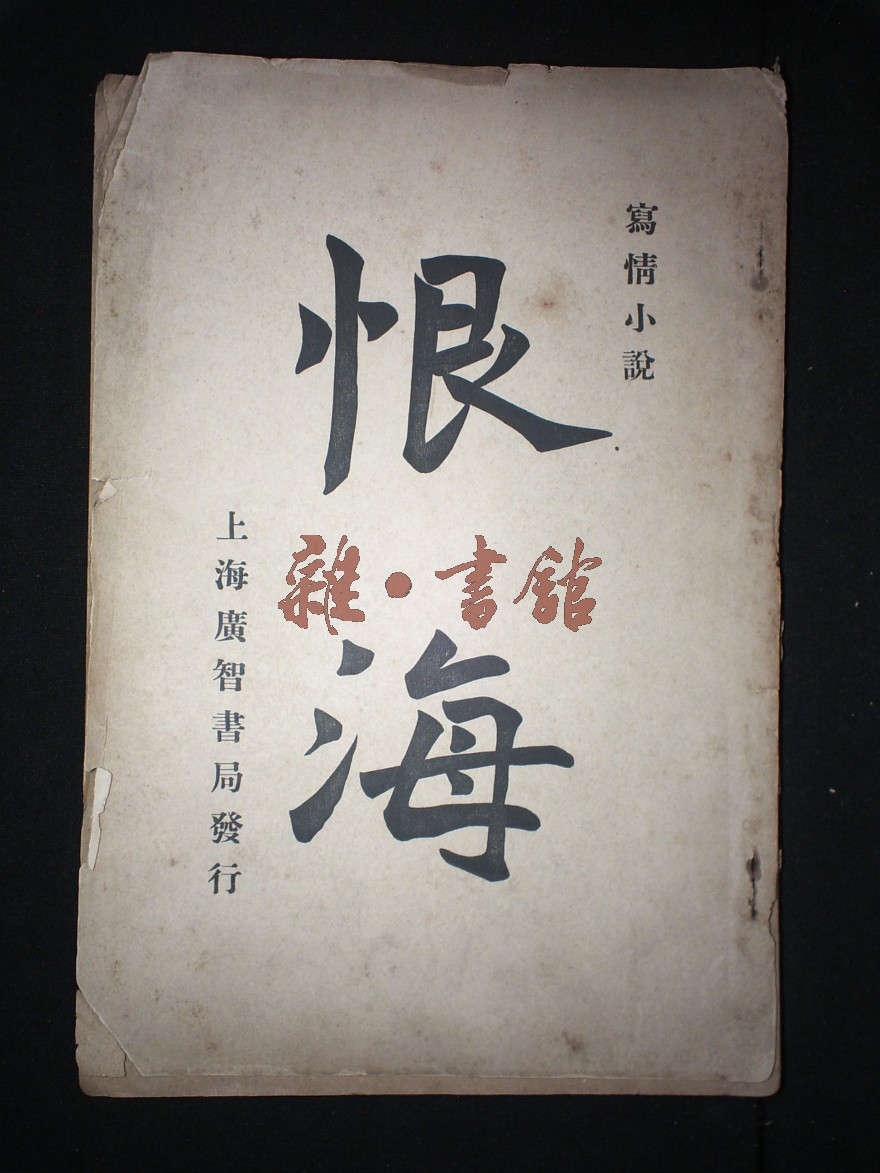 寫情小說
恨海
上海廣智書局發行
雜·書館